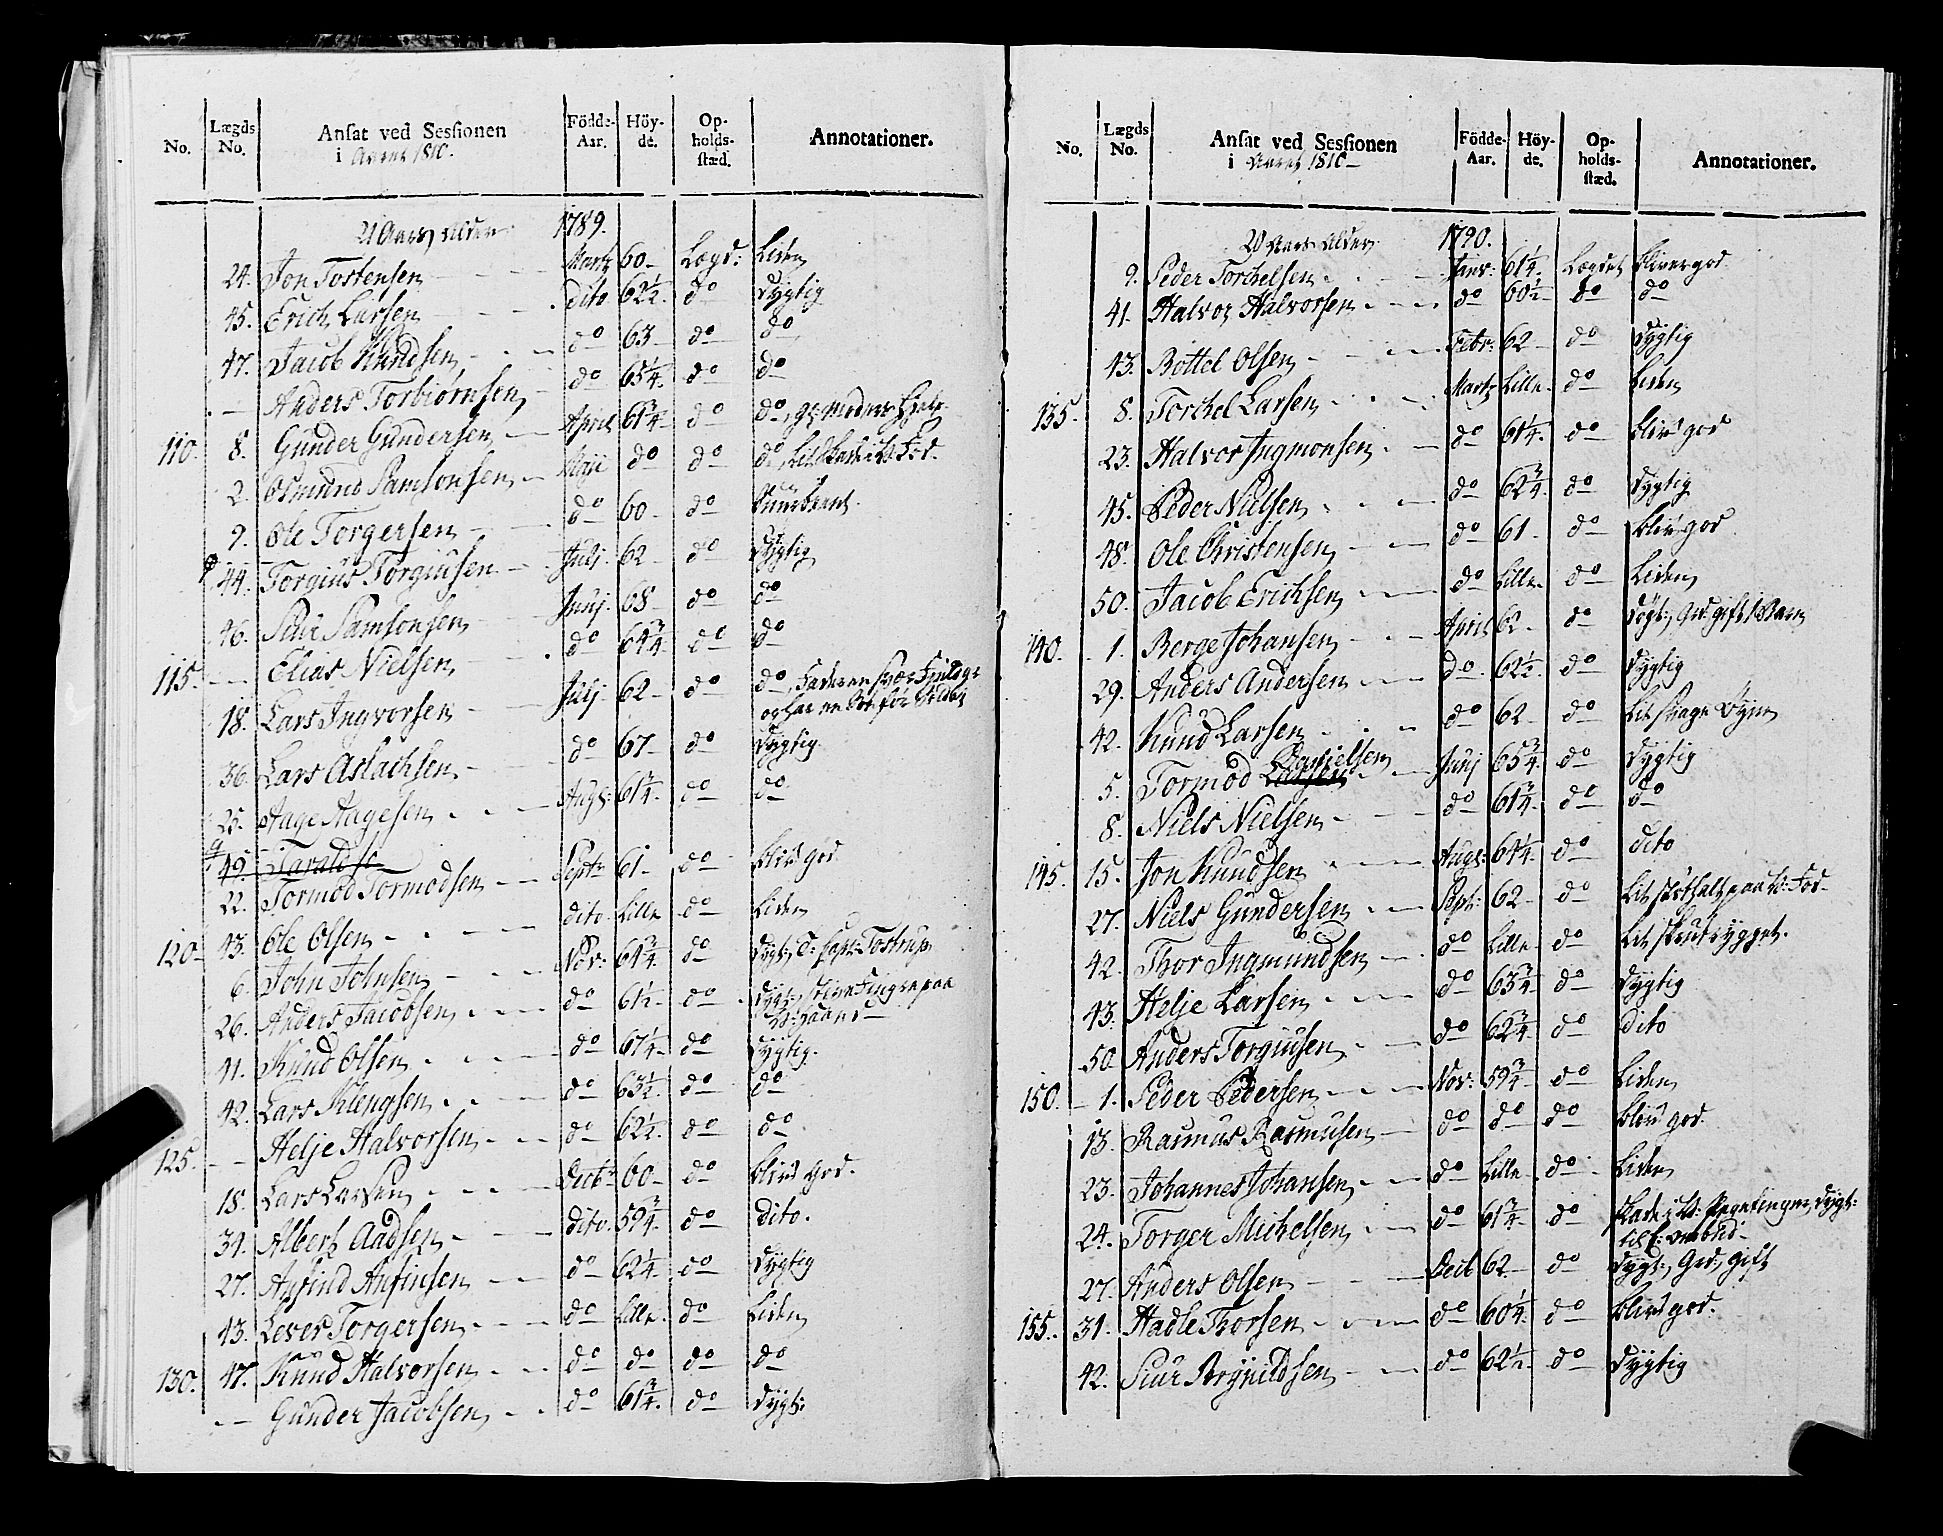 No. Lægds No. Ansat ved Sessionen i Aaret 1810. Födde-Aar. Höyde. Opholds-stæd. Annotationer.
21 Aars Alder 1789.
24. Jon Tostensen Martz 60 Lægd: Liden
45. Erich Larsen dito 62½ do Dygtig
47. Jacob Knudsen do 63 do do
— Anders Torbiørnsen do 65¼ do do
110. 8. Gunder Gundersen April 61¾ do do
2. Osmund Samsonsen Maji do do do
9. Ole Torgersen do 60 do
44. Torgius Torgiusen Julj 62 do Dygtig
46. Siur Samsonsen Junj 68 do do
115. — Elias Nielsen do 64¾ do do
18. Lars Ingvorsen Julj 62 do do
36. Lars Aslachsen do 67 do Dygtig
25. Aage Aagesen Augs: 61¾ do do
49. Taraldse
22. Tormod Tormodsen Septr 61 do bliv god
120 43. Ole Olsen dito Lille do Liden
6. John Johnsen Nov: 64¾ do Dygt:
26. Anders Jacobsen do 61½ do Dygt: stive Fingre paa V: Haand
41. Knud Olsen do 67¼ do Dygtig.
42. Lars Klengsen do 63½ do do
125. — Helje Halvorsen do 62½ do do
18. Lars Larsen Decbr 60 do bliv god.
34. Albert Aadsen dito 59¾ do dito.
27. Anfind Anfinsen do 62¼ do Dygtig
43. Lever Torgersen do Lille do Liden
130. 47. Knud Halvorsen do do do do
— Gunder Jacobsen do 61¾ do Dygt:
No. Lægds No. Ansat ved Sessionen i Aaret 1810 Födde-Aar. Höyde. Opholds-stæd. Annotationer.
20 Aars Alder 1790.
9. Peder Torchelsen Janr: 61¼ Lægdet bliver god
41. Halvor Halvorsen do 60½ do do
43. Bottel Olsen Febr: 62 do Dygtig
135. 8. Torchel Larsen Martz Lille do Liden
23. Halvor Ingmonsen do 61¼ do bliv god
45. Peder Nielsen do 62¾ do Dygtig
48. Ole Christensen do 61 do bliv god
50. Jacob Erichsen do Lille do Liden
140. 1. Berge Johansen April 62 do Dygt: Grd: gift 1 Barn
29. Anders Andersen do 62½ do Dygtig
42. Knud Larsen do 62 do Lit svage Øyne
5. Tormod Larsen Danielsen Junj 65¾ do Dygtig
8. Niels Nielsen do 61¾ do do
145. 15. Jon Knudsen Augs: 64¼ do dito
27. Niels Gundersen Sept: 62 do
42. Thor Ingmundsen do Lille do Lit skutrygget.
43. Helje Larsen do 63¾ do Dygtig
50. Anders Torgiusen do 62¾ do dito
150. 1. Peder Pedersen Nov: 59¾ do Liden
13. Rasmus Rasmusen do do do bliv god.
23. Johannes Johansen do Lille do Liden
24. Torger Michelsen do 61¾ do Skade i V: Pegefinger, Dygt:
27. Anders Olsen Decb 62 do Dygt: Grd: Gift
155. 31. Hadle Thorsen do 60¼ do bliv god.
42. Siur Brynildsen do 62½ do Dygtig